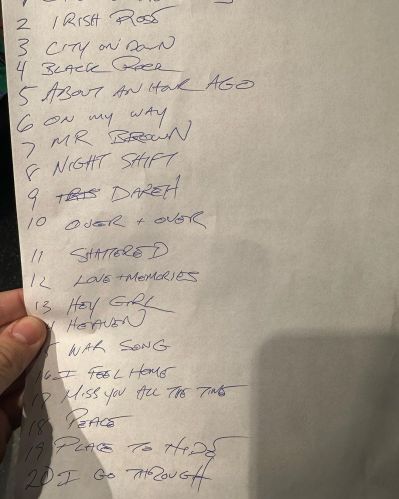 2 IRISH ROSE
3 CITY ON DOWN
4 BLACK ROCK
5 ABOUT AN HOUR AGO
6 ON MY WAY
7 MR BROWN
8 NIGHT SHIFT
9 DAREH
10 OVER + OVER
11 SHATTERED
12 LOVE + MEMORIES
13 HEY GIRL
HEAVEN
WAR SONG
16 I FEEL HOME
17 MISS YOU ALL THE TIME
18 PEACE
19 PLACE TO HIDE
20 I GO THROUGH